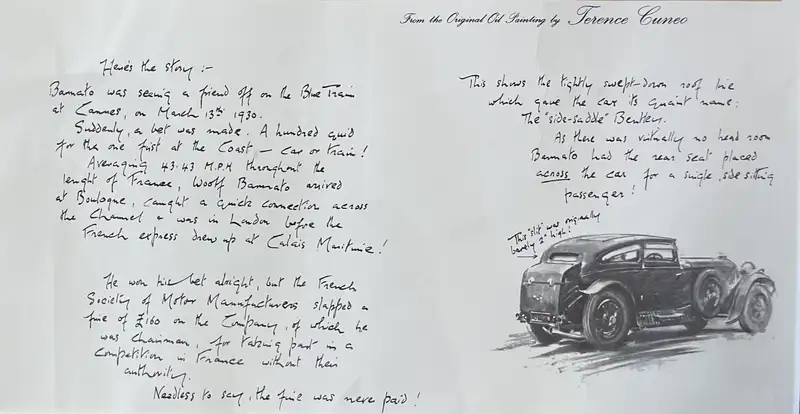 From the Original Oil Painting by Terence Cuneo
Here's the story :-
Barnato was seeing a friend off on the Blue Train
at Cannes, on March 13th 1930.
Suddenly, a bet was made. A hundred quid
for the one first at the Coast — car or train!
Averaging 43.43 M.P.H throughout the
lenght of France, Woolf Barnato arrived
at Boulogne, caught a quick connection across
the Channel & was in London before the
French express drew up at Calais Maritime!
He won his bet alright, but the French
Society of Motor Manufacturers slapped a
fine of £160 on the Company, of which he
was Chairman, for taking part in a
competition in France without their
authority.
Needless to say, the fine was never paid!
This shows the tightly swept-down roof line
which gave the car its quaint name:
The "side-saddle" Bentley.
As there was virtually no head room
Barnato had the rear seat placed
across the car for a single, side sitting
passenger!
This "slit" was originally
barely 2" high!